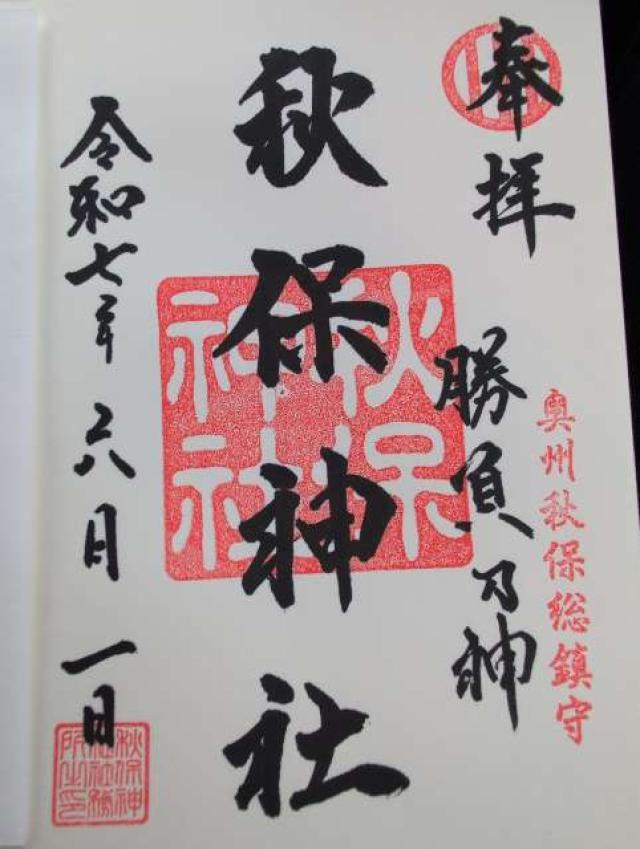 奉拝
奥州秋保総鎮守
勝負乃神
秋保神社
秋保
神社
令和七年 六月 一日